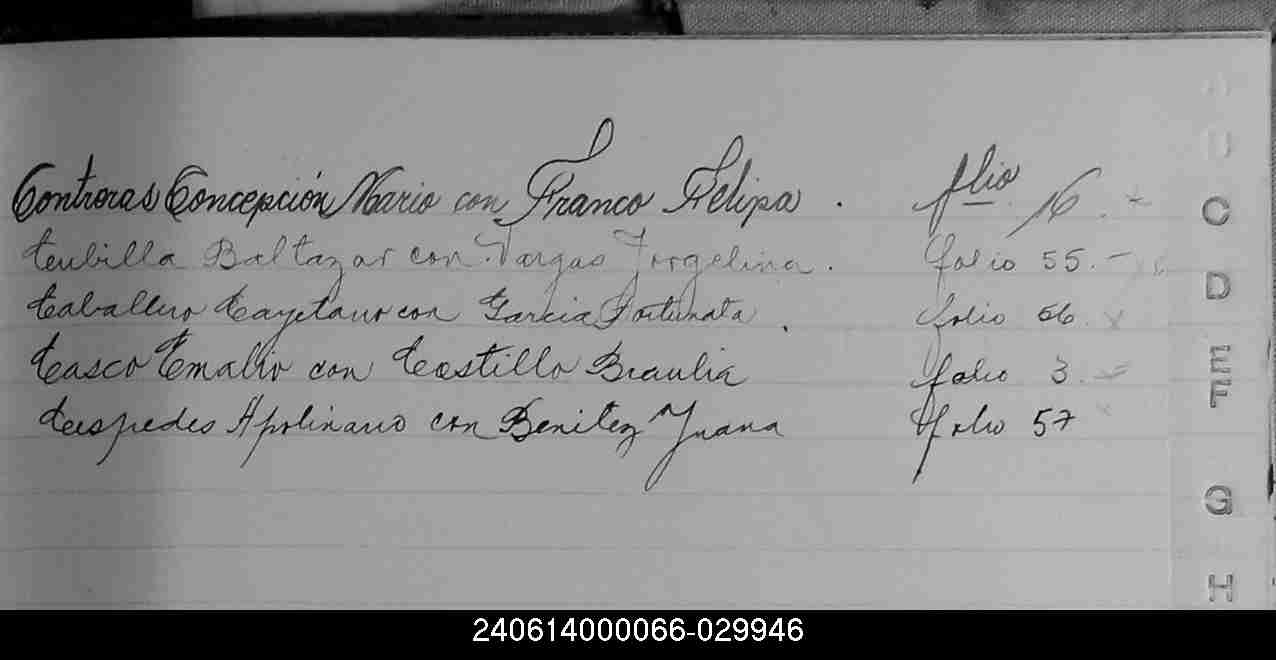 Contreras Concepción Mario con Franco Felipa . folio 16.
Cubilla Baltazar con Vargas Jorgelina. folio 55.-
Caballero Cayetano con Garcia Fortunata. folio 56.
Casco Emalio con Castillo Braulia folio 3.
Cespedes Apolinario con Benitez Juana folio 57
C
D
E
F
G
H
240614000066-029946